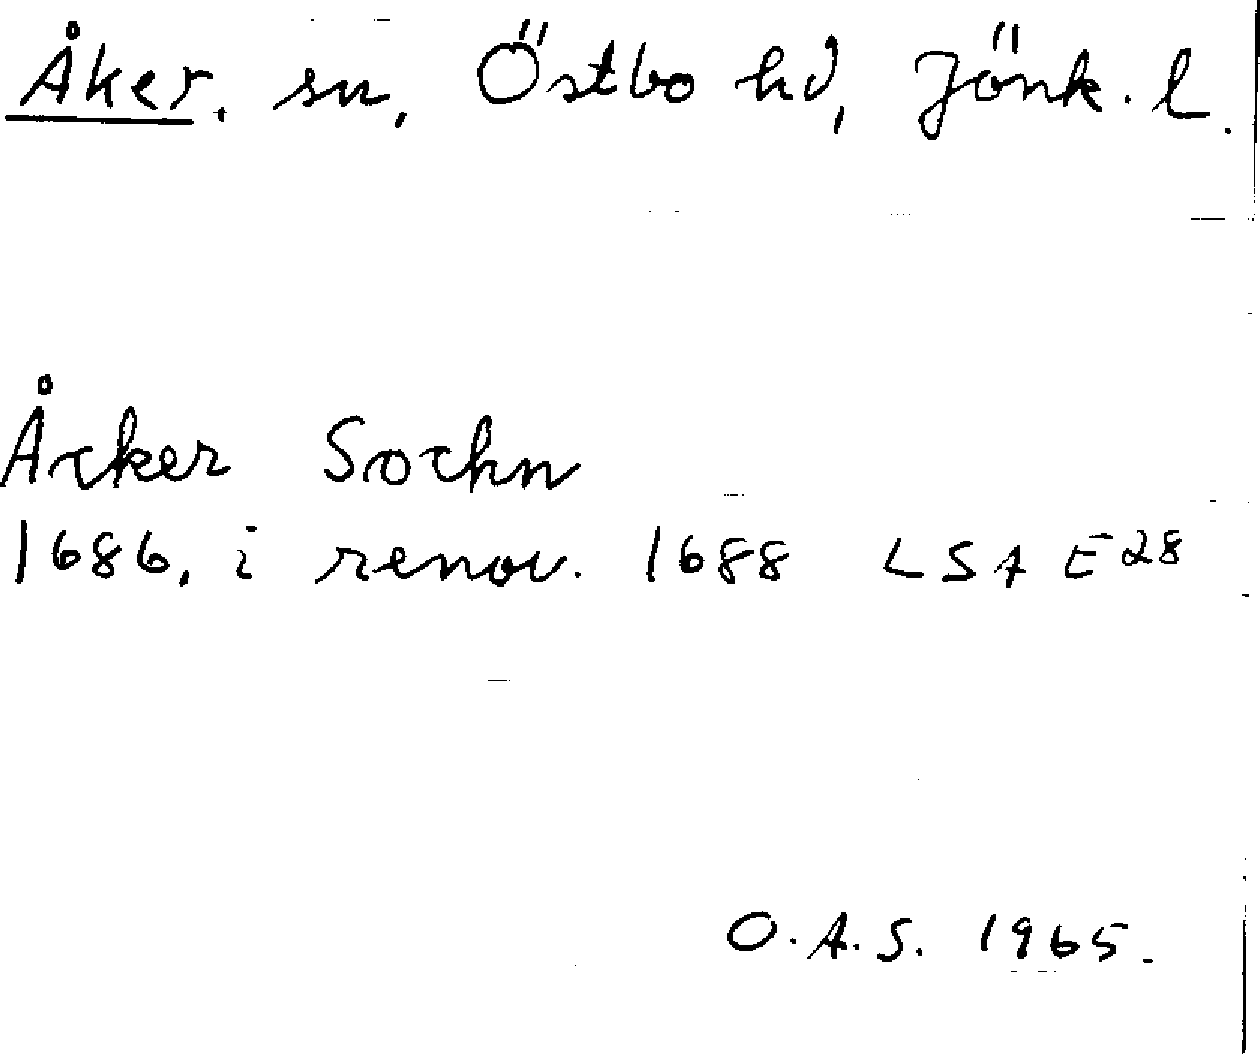 Åker. sn, Östbo hd, Jönk. l.
Åcker Sochn
1686, i renov. 1688 LSA E28
O.A.S. 1965.